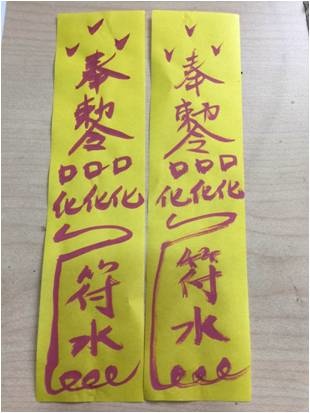 奉
勅令
口口口
化化化
符
水
奉
勅令
口口口
化化化
符
水